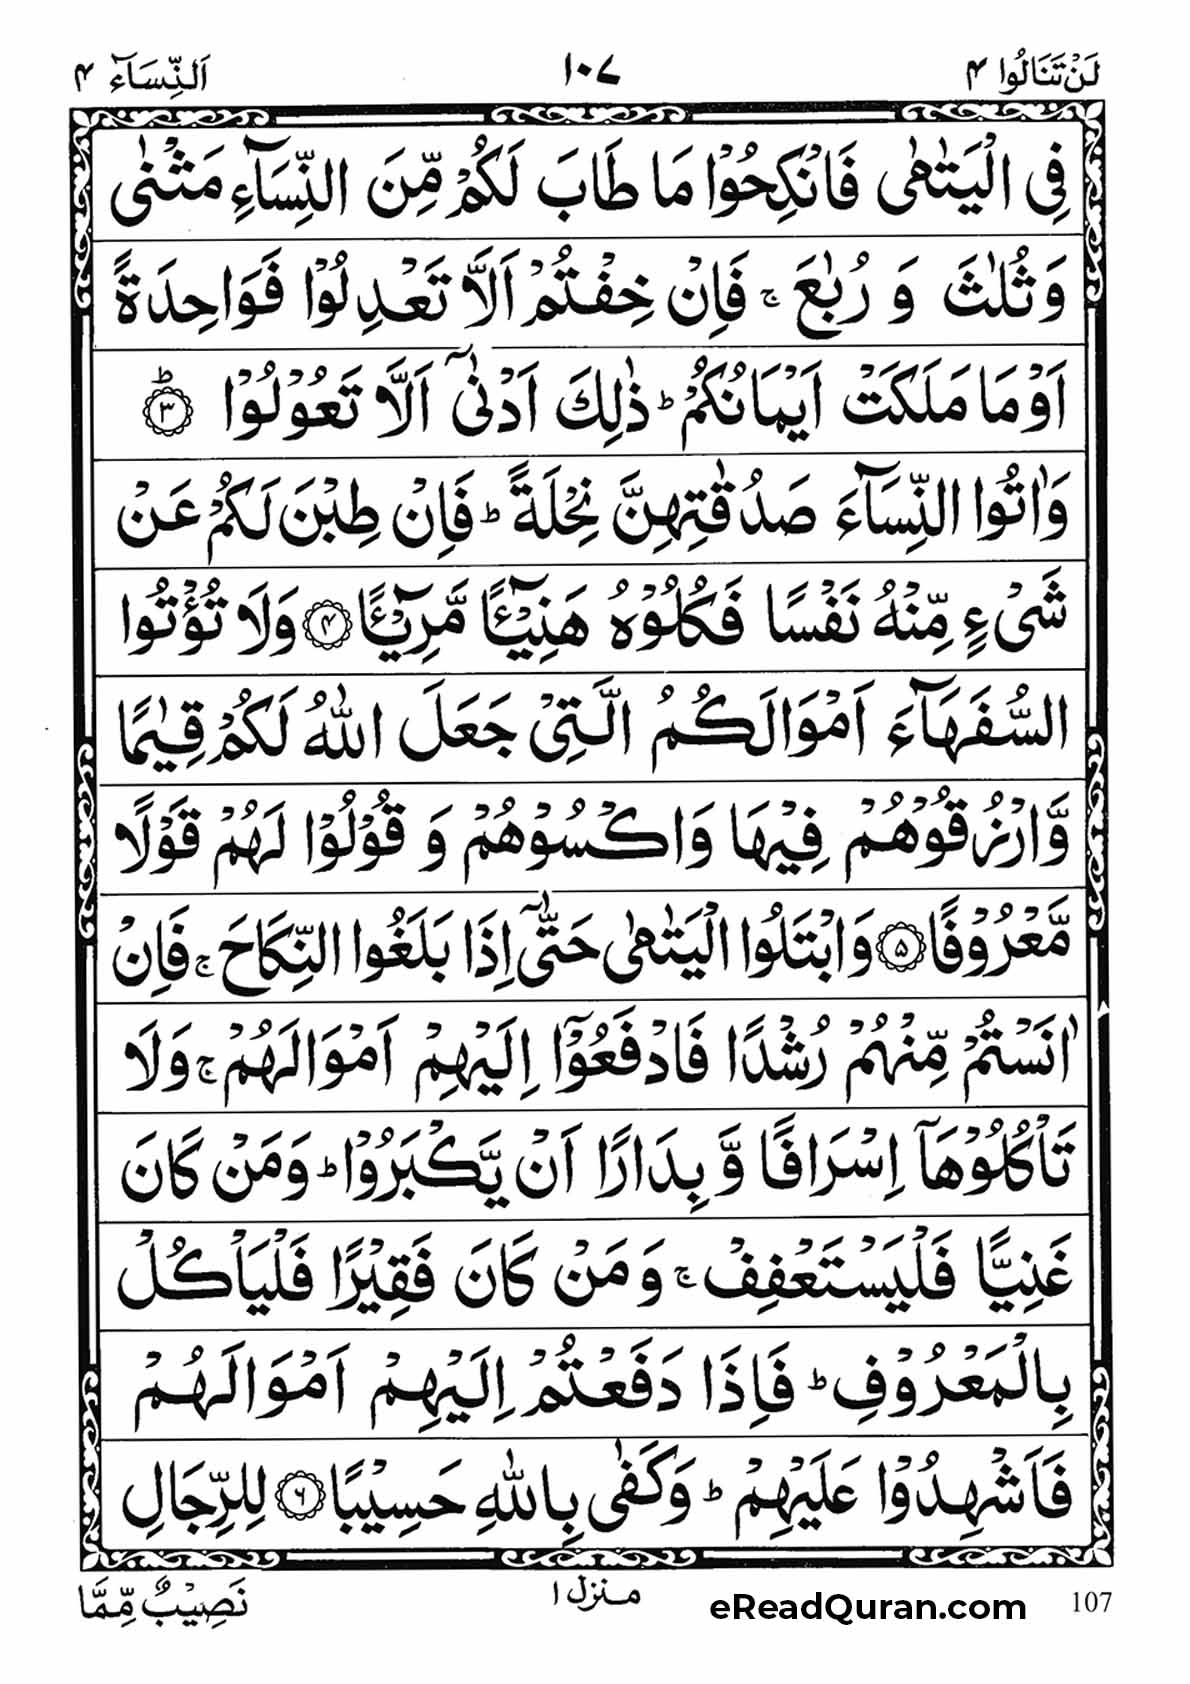 لَنْ تَنَالُوا ۴ ١٠٧ اَلنِّسَآء ۴
فِى الْيَتٰمٰى فَانْكِحُوْا مَا طَابَ لَكُمْ مِّنَ النِّسَآءِ مَثْنٰى
وَثُلٰثَ وَ رُبٰعَ ۚ فَاِنْ خِفْتُمْ اَلَّا تَعْدِلُوْا فَوَاحِدَةً
اَوْ مَا مَلَكَتْ اَيْمَانُكُمْ ؕ ذٰلِكَ اَدْنٰۤى اَلَّا تَعُوْلُوْا ؕ‏ ۳
وَاٰتُوا النِّسَآءَ صَدُقٰتِهِنَّ نِحْلَةً ؕ فَاِنْ طِبْنَ لَكُمْ عَنْ
شَىْءٍ مِّنْهُ نَفْسًا فَكُلُوْهُ هَنِيْٓـئًا مَّرِيْٓـئًا ۴ وَلَا تُؤْتُوا
السُّفَهَآءَ اَمْوَالَكُمُ الَّتِىْ جَعَلَ اللّٰهُ لَكُمْ قِيٰمًا
وَّارْزُقُوْهُمْ فِيْهَا وَاكْسُوْهُمْ وَ قُوْلُوْا لَهُمْ قَوْلًا
مَّعْرُوْفًا ۵ وَابْتَلُوا الْيَتٰمٰى حَتّٰۤى اِذَا بَلَغُوا النِّكَاحَ ۚ فَاِنْ
اٰنَسْتُمْ مِّنْهُمْ رُشْدًا فَادْفَعُوْۤا اِلَيْهِمْ اَمْوَالَهُمْ ۚ وَلَا
تَاْكُلُوْهَاۤ اِسْرَافًا وَّ بِدَارًا اَنْ يَّكْبَرُوْا ؕ وَمَنْ كَانَ
غَنِيًّا فَلْيَسْتَعْفِفْ ۚ وَمَنْ كَانَ فَقِيْرًا فَلْيَاْكُلْ
بِالْمَعْرُوْفِ ؕ فَاِذَا دَفَعْتُمْ اِلَيْهِمْ اَمْوَالَهُمْ
فَاَشْهِدُوْا عَلَيْهِمْ ؕ وَكَفٰى بِاللّٰهِ حَسِيْبًا ۶ لِلرِّجَالِ
نَصِيْبٌ مِّمَّا
منزل ١
eReadQuran.com
107